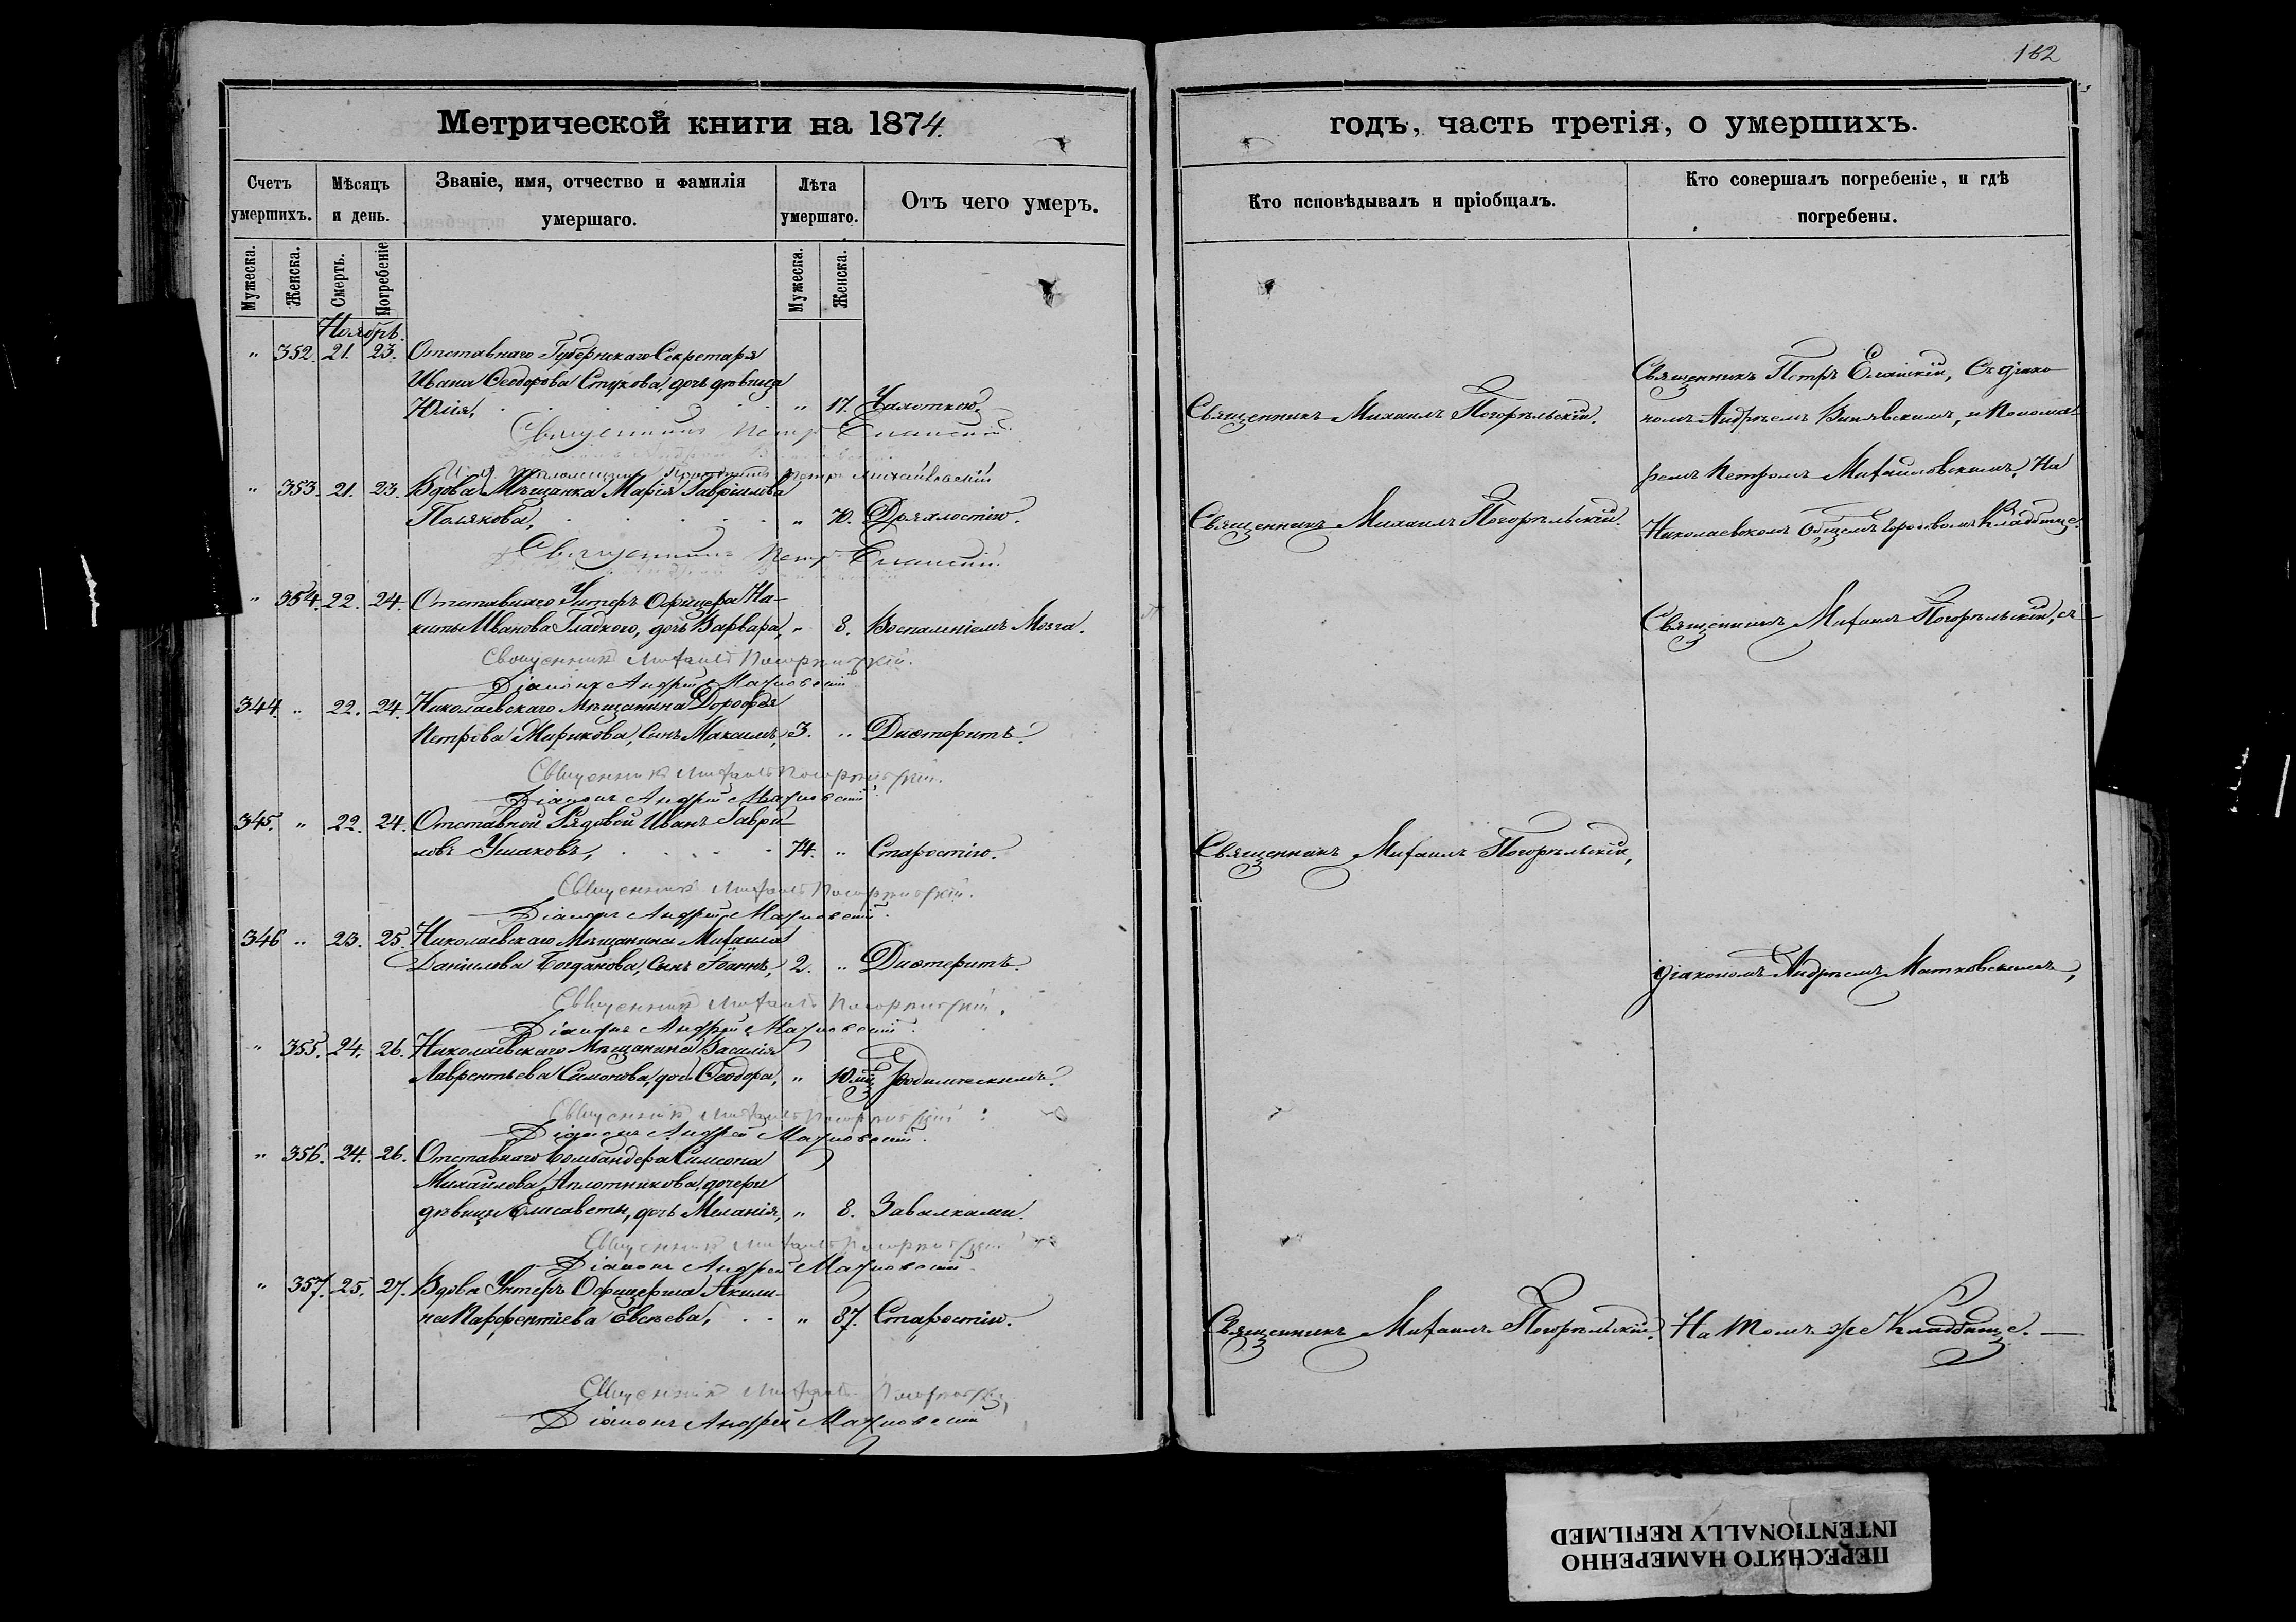 162
Метрической книги на 1874.
годъ, часть третія, о умершихъ.
Счетъ умершихъ.
Мѣсяцъ и день.
Званіе, имя, отчество и фамилія умершаго.
Лѣта умершаго.
Отъ чего умеръ.
Кто исповѣдывалъ и пріобщалъ.
Кто совершалъ погребеніе, и гдѣ погребены.
Мужеска.
Женска.
Смерть.
Погребеніе
Мужеска.
Женска.
Ноябрь.
" 352. 21. 23. Отставнаго Губернскаго Секретаря
Ивана Ѳеодорова Стукова, дочь дѣвица
Юлія, " 17. Чахоткою.
Священникъ Петръ
Священникъ Михаилъ Погорѣльскій.
" 353. 21. 23. Вдова Мѣщанка Марія Гавріилова
Полякова, " 70. Дряхлостію.
Священникъ Петръ
Священникъ Михаилъ Погорѣльскій.
Священникъ Петръ Еланскій, съ діако-
номъ Андреемъ и Понома-
ремъ Петромъ Михайловскимъ, На
Николаевскомъ Общемъ городовомъ Кладбище.
" 354. 22. 24. Отставнаго Унтеръ Офицера Ни-
киты Иванова Гладкого, дочь Варвара, " 8. Воспаленіемъ Мозга.
Священникъ Михаилъ Погорѣльскій.
Діаконъ Андрей Матковскій
Священникъ Михаилъ Погорѣльскій, съ
344. " 22. 24. Николаевскаго Мѣщанина Дорофея
Петрова Мирикова, Сынъ Максимъ, 3. " Дифтеритъ.
Священникъ Михаилъ Погорѣльскій.
Діаконъ Андрей Матковскій
345. " 22. 24. Отставной Рядовой Иванъ Гаврі-
ловъ Ушаковъ, 74. " Старостію.
Священникъ Михаилъ Погорѣльскій.
Діаконъ Андрей Матковскій
Священникъ Михаилъ Погорѣльскій,
346 " 23. 25. Николаевскаго Мѣщанина Михаила
Даніилова Богданова, Сынъ Іоаннъ, 2. " Дифтеритъ.
Священникъ Михаилъ Погорѣльскій.
Діаконъ Андрей Матковскій
діакономъ Андреемъ Матковскимъ,
" 355. 24. 26. Николаевскаго Мѣщанина Василія
Лаврентьева Симонова, дочь Ѳеодора, " 10 Родимческимъ.
Священникъ Михаилъ Погорѣльскій
Діаконъ Андрей Матковскій
" 356. 24. 26. Отставнаго Бомбандера Симеона
Михайлова дочери
дѣвицы Елисаветы, дочь Меланія, " 8. Завалками.
Священникъ Михаилъ Погорѣльскій
Діаконъ Андрей Матковскій
" 357. 25. 27. Вдова Унтеръ Офицерша Акили-
на Парфентіева Евсѣева, " 87. Старостію.
Священникъ Михаилъ Погорѣльскій.
На томъ же Кладбище.
Священникъ Михаилъ Погорѣльскій
Діаконъ Андрей Матковскій
ПЕРЕСНЯТО НАМЕРЕННО
INTENTIONALLY REFILMED